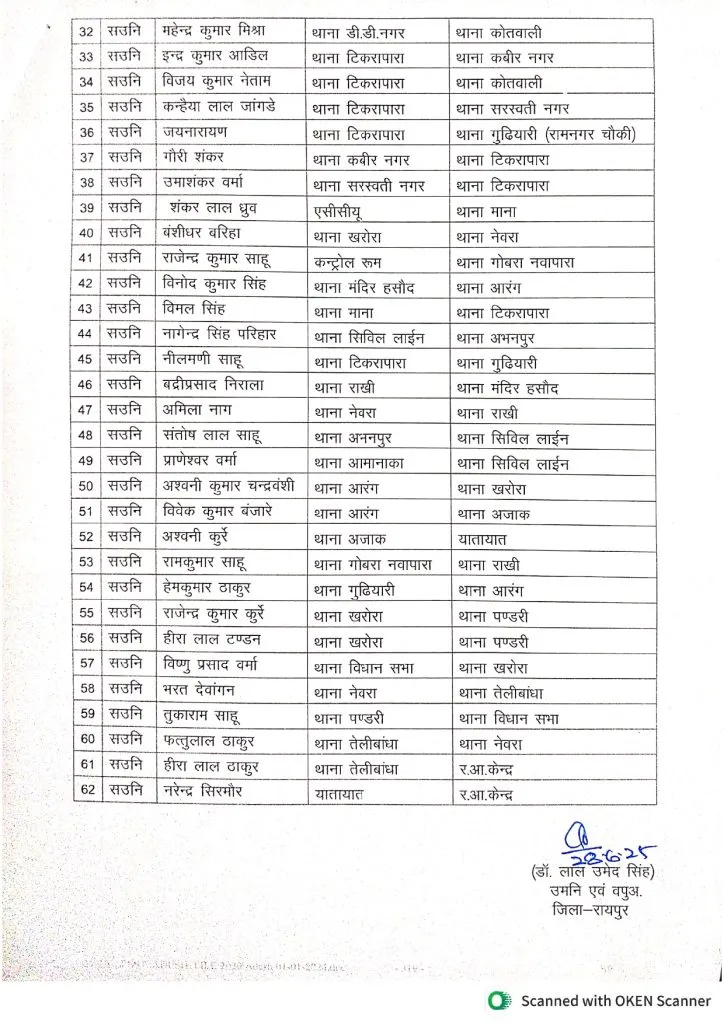 32 सउनि महेन्द्र कुमार मिश्रा थाना डी.डी.नगर थाना कोतवाली
33 सउनि इन्द्र कुमार आडिल थाना टिकरापारा थाना कबीर नगर
34 सउनि विजय कुमार नेताम थाना टिकरापारा थाना कोतवाली
35 सउनि कन्हैया लाल जांगडे थाना टिकरापारा थाना सरस्वती नगर
36 सउनि जयनारायण थाना टिकरापारा थाना गुढियारी (रामनगर चौकी)
37 सउनि गौरी शंकर थाना कबीर नगर थाना टिकरापारा
38 सउनि उमाशंकर वर्मा थाना सरस्वती नगर थाना टिकरापारा
39 सउनि शंकर लाल ध्रुव एसीसीयू थाना माना
40 सउनि बंशीधर बरिहा थाना खरोरा थाना नेवरा
41 सउनि राजेन्द्र कुमार साहू कन्ट्रोल रूम थाना गोबरा नवापारा
42 सउनि विनोद कुमार सिंह थाना मंदिर हसौद थाना आरंग
43 सउनि विमल सिंह थाना माना थाना टिकरापारा
44 सउनि नागेन्द्र सिंह परिहार थाना सिविल लाईन थाना अभनपुर
45 सउनि नीलमणी साहू थाना टिकरापारा थाना गुढियारी
46 सउनि बद्रीप्रसाद निराला थाना राखी थाना मंदिर हसौद
47 सउनि अमिला नाग थाना नेवरा थाना राखी
48 सउनि संतोष लाल साहू थाना अभनपुर थाना सिविल लाईन
49 सउनि प्राणेश्वर वर्मा थाना आमानाका थाना सिविल लाईन
50 सउनि अश्वनी कुमार चन्द्रवंशी थाना आरंग थाना खरोरा
51 सउनि विवेक कुमार बंजारे थाना आरंग थाना अजाक
52 सउनि अश्वनी कुर्रे थाना अजाक यातायात
53 सउनि रामकुमार साहू थाना गोबरा नवापारा थाना राखी
54 सउनि हेमकुमार ठाकुर थाना गुढियारी थाना आरंग
55 सउनि राजेन्द्र कुमार कुर्रे थाना खरोरा थाना पण्डरी
56 सउनि हीरा लाल टण्डन थाना खरोरा थाना पण्डरी
57 सउनि विष्णु प्रसाद वर्मा थाना विधान सभा थाना खरोरा
58 सउनि भरत देवांगन थाना नेवरा थाना तेलीबांधा
59 सउनि तुकाराम साहू थाना पण्डरी थाना विधान सभा
60 सउनि फत्तुलाल ठाकुर थाना तेलीबांधा थाना नेवरा
61 सउनि हीरा लाल ठाकुर थाना तेलीबांधा र.आ.केन्द्र
62 सउनि नरेन्द्र सिरमौर यातायात र.आ.केन्द्र
28-6-25
(डॉ. लाल उमेद सिंह)
उमनि एवं वपुअ.
जिला–रायपुर
Scanned with OKEN Scanner